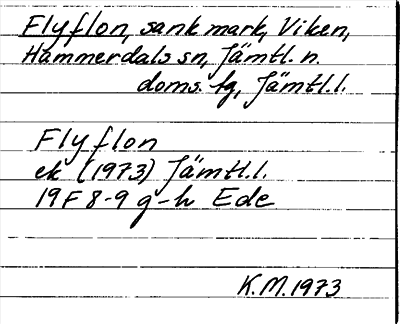 Flyflon, sank mark, Viken,
Hammerdals sn, Jämtl. n.
doms. fg, Jämtl.l.
Flyflon
ek (1973) Jämtl.l.
19F 8-9 g-h Ede
K.M. 1973